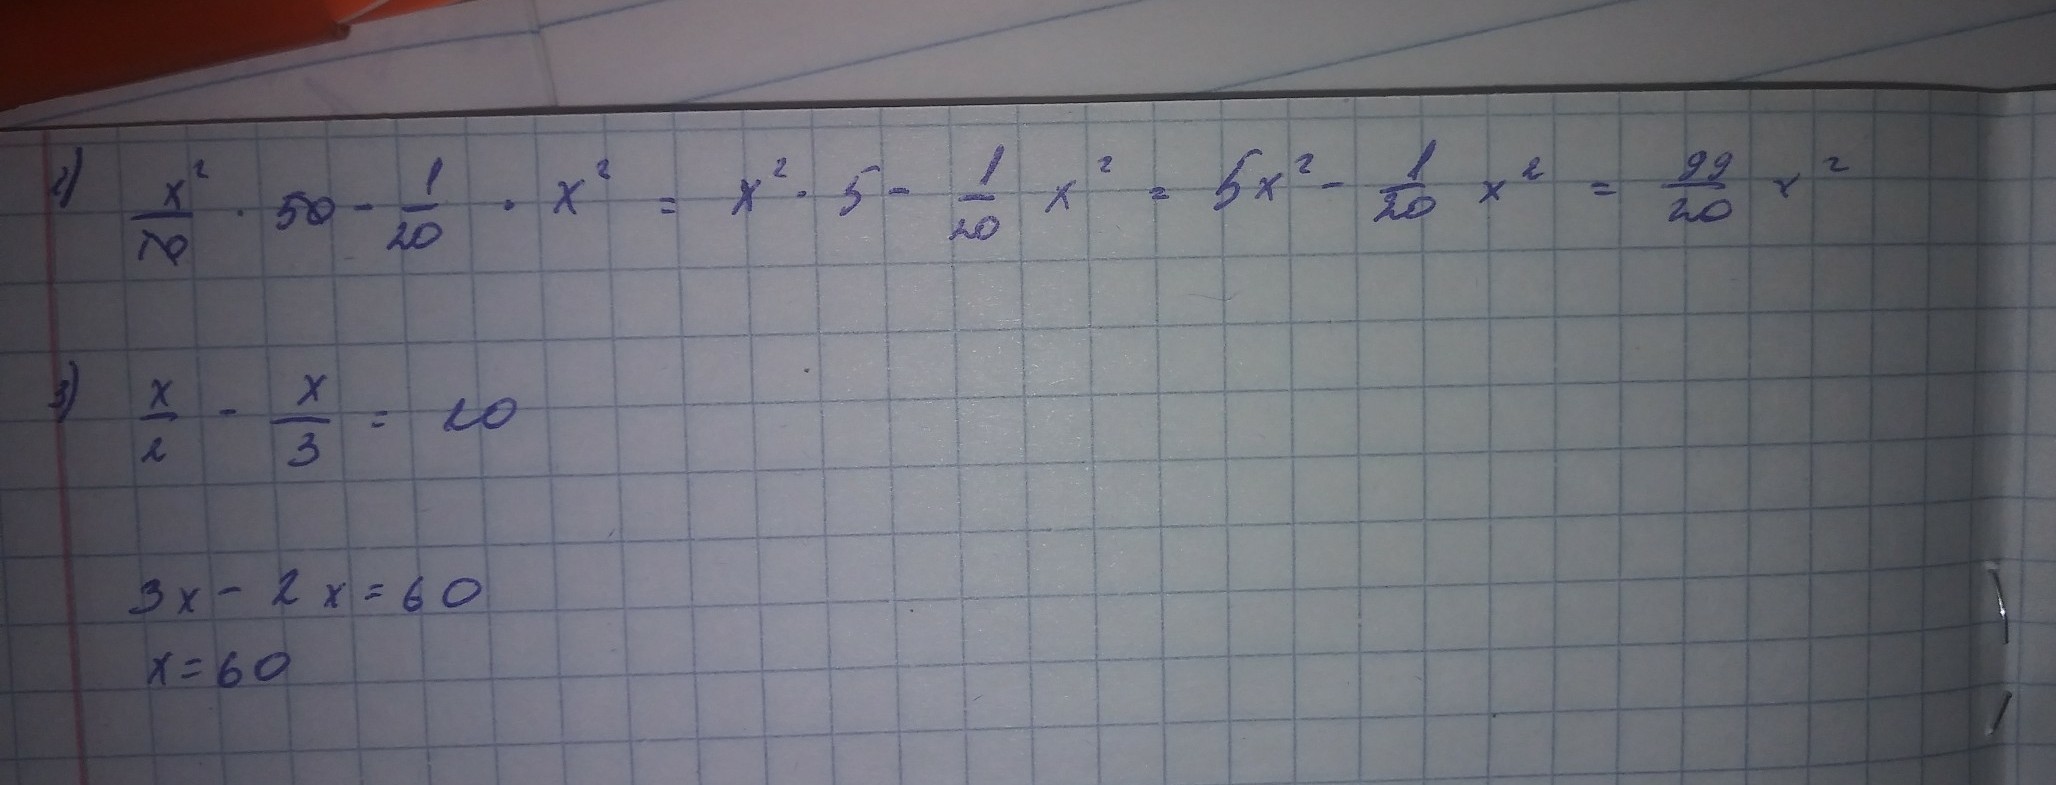 2) x²/10 · 50 - 1/20 · x² = x² · 5 - 1/20 x² = 5x² - 1/20 x² = 99/20 x²
3) x/2 - x/3 = 10
3x - 2x = 60
x = 60